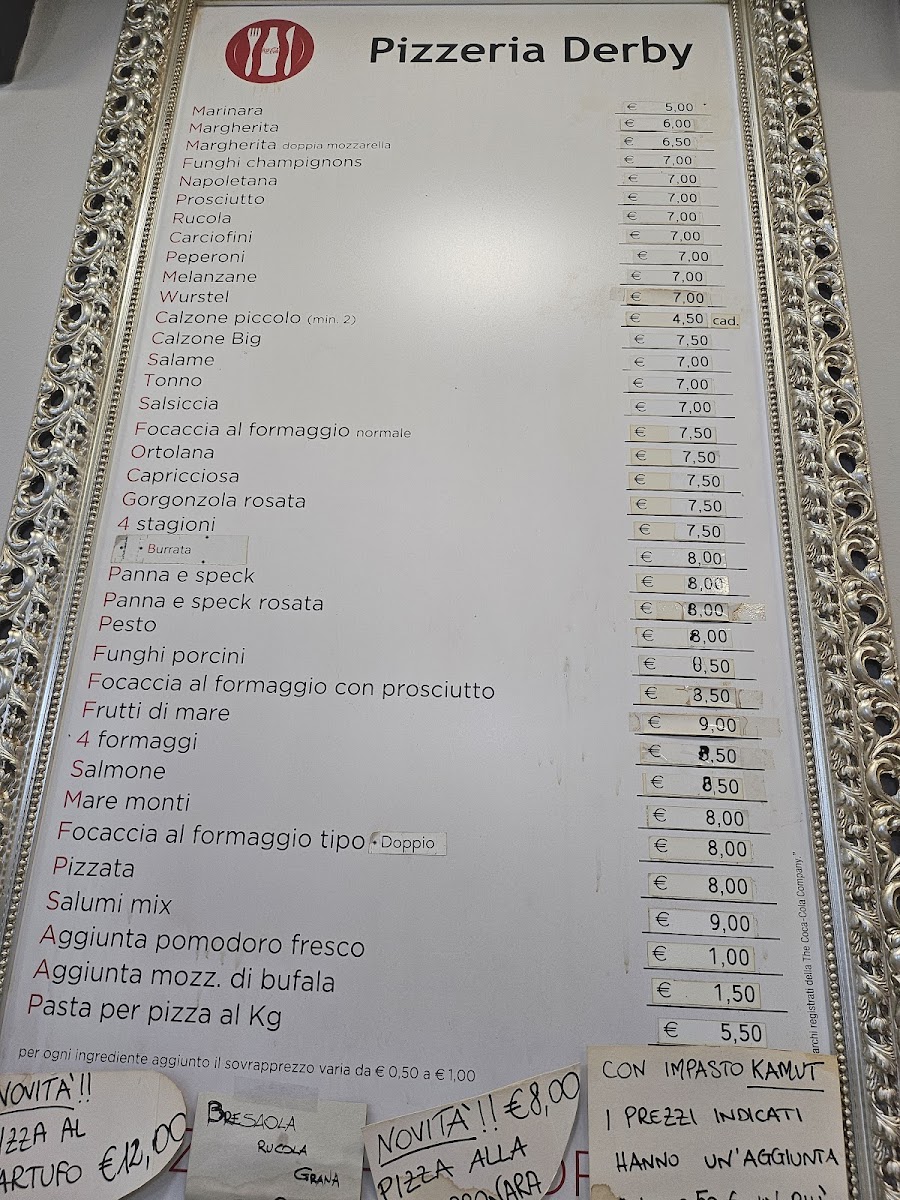 Pizzeria Derby
Marinara € 5,00
Margherita € 6,00
Margherita doppia mozzarella € 6,50
Funghi champignons € 7,00
Napoletana € 7,00
Prosciutto € 7,00
Rucola € 7,00
Carciofini € 7,00
Peperoni € 7,00
Melanzane € 7,00
Wurstel € 7,00
Calzone piccolo (min. 2) € 4,50 cad.
Calzone Big € 7,50
Salame € 7,00
Tonno € 7,00
Salsiccia € 7,00
Focaccia al formaggio normale € 7,50
Ortolana € 7,50
Capricciosa € 7,50
Gorgonzola rosata € 7,50
4 stagioni € 7,50
Burrata € 8,00
Panna e speck € 8,00
Panna e speck rosata € 8,00
Pesto € 8,00
Funghi porcini € 8,50
Focaccia al formaggio con prosciutto € 8,50
Frutti di mare € 9,00
4 formaggi € 8,50
Salmone € 8,50
Mare monti € 8,00
Focaccia al formaggio tipo Doppio € 8,00
Pizzata € 8,00
Salumi mix € 9,00
Aggiunta pomodoro fresco € 1,00
Aggiunta mozz. di bufala € 1,50
Pasta per pizza al Kg € 5,50
per ogni ingrediente aggiunto il sovrapprezzo varia da € 0,50 a € 1,00
archi registrati della The Coca-Cola Company."
NOVITA'!!
IZZA AL
ARTUFO €12,00
BRESAOLA
RUCOLA
GRANA
NOVITA'!! €8,00
PIZZA ALLA
CON IMPASTO KAMUT
I PREZZI INDICATI
HANNO UN'AGGIUNTA